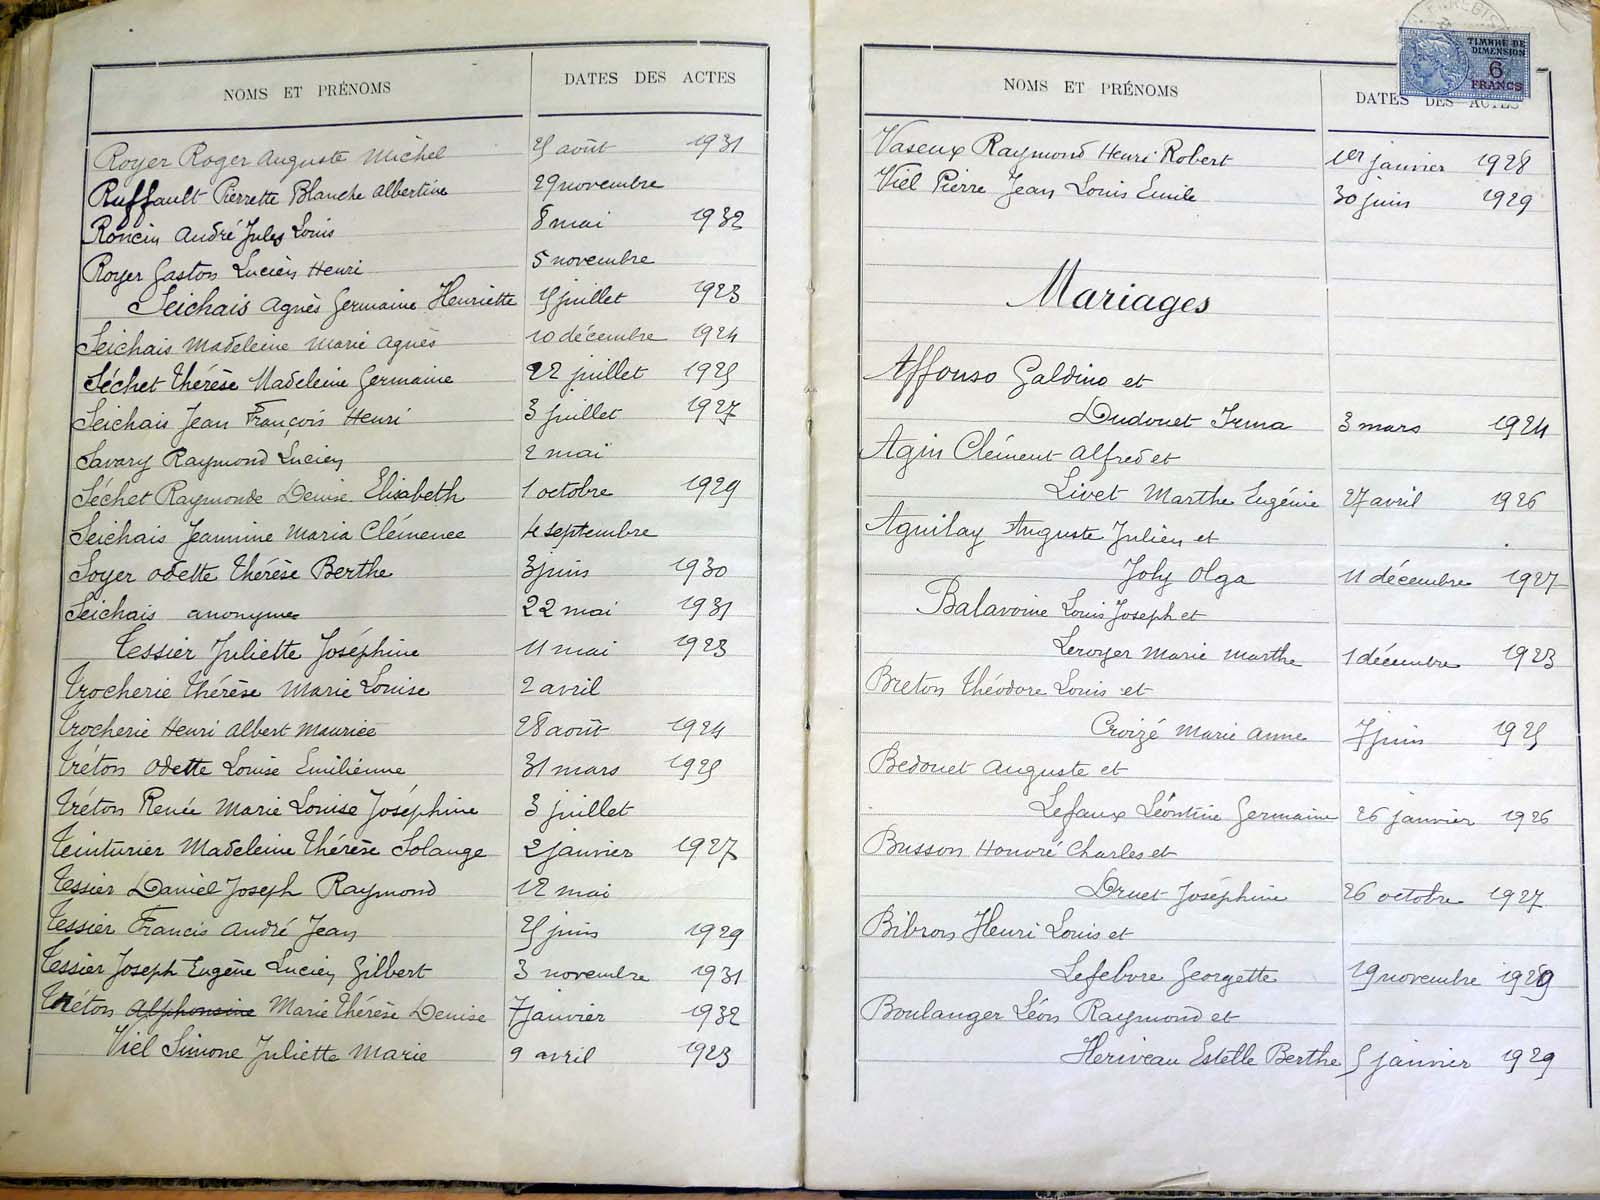 NOMS ET PRÉNOMS DATES DES ACTES
Royer Roger Auguste Michel 25 août 1931
Ruffault Pierrette Blanche Albertine 29 novembre
Roncin André Jules Louis 8 mai 1932
Royer Gaston Lucien Henri 5 novembre
Seichais Agnès Germaine Henriette 5 juillet 1923
Seichais Madeleine Marie Agnès 10 décembre 1924
Séchet Thérèse Madeleine Germaine 22 juillet 1925
Seichais Jean François Henri 3 juillet 1927
Savary Raymond Lucien 2 mai
Séchet Raymonde Denise Elisabeth 1 octobre 1929
Seichais Jeannine Maria Clémence 4 septembre
Soyer Odette Thérèse Berthe 3 juin 1930
Seichais anonyme 22 mai 1931
Tessier Juliette Joséphine 11 mai 1923
Trocherie Thérèse Marie Louise 2 avril
Trocherie Henri Albert Maurice 28 août 1924
Tréton Odette Louise Emilienne 31 mars 1925
Tréton Renée Marie Louise Joséphine 3 juillet
Teinturier Madeleine Thérèse Solange 2 janvier 1927
Tessier Daniel Joseph Raymond 12 mai
Tessier Francis André Jean 25 juin 1929
Tessier Joseph Eugène Lucien Gilbert 3 novembre 1931
Tréton Alphonsine Marie Thérèse Denise 7 janvier 1932
Viel Simone Juliette Marie 9 avril 1923
TIMBRE DE
DIMENSION
6
FRANCS
NOMS ET PRÉNOMS DATES DES ACTES
Vaseux Raymond Henri Robert 1er janvier 1928
Viel Pierre Jean Louis Emile 30 juin 1929
Mariages
Affonso Galdino et
Dudouet Irma 3 mars 1924
Agin Clément Alfred et
Livet Marthe Eugénie 27 avril 1926
Aguilay Auguste Julien et
Joly Olga 11 décembre 1927
Balavoine Louis Joseph et
Leroyer Marie Marthe 1 décembre 1923
Breton Théodore Louis et
Croizé Marie Anne 7 juin 1925
Bedouet Auguste et
Lefaux Léontine Germaine 26 janvier 1926
Busson Honoré Charles et
Druet Joséphine 26 octobre 1927
Bibron Henri Louis et
Lefebvre Georgette 19 novembre 1929
Boulanger Léon Raymond et
Heriveau Estelle Berthe 5 janvier 1929